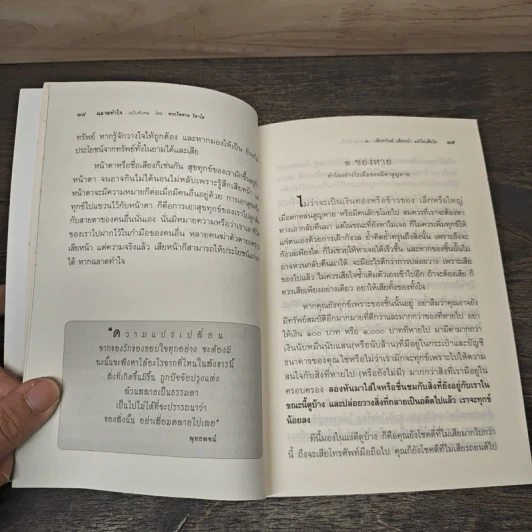 ๑๘ ฉลาดทำใจ ฉบับพิเศษ โดย พระไพศาล วิสาโล
ทรัพย์ หากรู้จักวางใจให้ถูกต้อง และหากมองให้เป็น ย่อมได้
ประโยชน์จากทรัพย์ทั้งในยามได้และเสีย
หน้าตาหรือชื่อเสียงก็เช่นกัน สุขทุกข์ของเรามักขึ้นอยู่กับ
หน้าตา จนอาจกินไม่ได้นอนไม่หลับเพราะรู้สึกเสียหน้า
หน้าตาจะมีความหมายก็ต่อเมื่อมีคนอื่นอยู่ด้วย การเอาสุขทุกข์
ทุกข์ไปแขวนไว้กับหน้าตา ก็คือการเอาสุขทุกข์ของเราไปผูกไว้
กับสายตาของคนอื่นนั่นเอง นั่นมิหมายความหรือว่าเราเอาชีวิต
ของเราไปฝากไว้ในกำมือของคนอื่น หลายคนฆ่าตัวตายเพราะ
เสียหน้า แต่ความจริงแล้ว เสียหน้าก็สามารถให้ประโยชน์แก่เรา
ได้ หากฉลาดทำใจ
"ความแปรเปลี่ยน
จากของรักของชอบใจทุกอย่าง จะต้องมี
ฉะนั้นจะพึงหาได้อะไรจากที่ไหนในสังขารนี้
สิ่งที่เกิดขึ้นมีขึ้น ถูกปัจจัยปรุงแต่ง
ล้วนสลายเป็นธรรมดา
เป็นไปไม่ได้ที่จะปรารถนาว่า
ของสิ่งนั้น อย่าเสื่อมสลายไปเลย"
พุทธพจน์
๑ : เสียทรัพย์ เสียหน้า แต่ไม่เสียใจ ๑๙
๑.ของหาย
ทำใจอย่างไรเมื่อของมีค่าสูญหาย
ไม่ว่าจะเป็นเงินทองหรือข้าวของ เล็กหรือใหญ่
เมื่อตกหล่นสูญหาย หรือมีคนลักขโมยไป สมควรที่เราจะต้องหา
ทางเอากลับคืนมา แต่ในขณะที่ยังหาไม่เจอ ก็ไม่ควรเพิ่มทุกข์ให้
แก่ตนเองด้วยการเฝ้ากังวล ย้ำคิดย้ำครุ่นถึงสิ่งนั้น เพราะถึงจะ
กังวลเพียงใด ก็ไม่ช่วยให้หาเจอได้เร็วขึ้น และหากของชิ้นนั้นไม่
อาจหวนกลับคืนมาได้ จะมีอะไรดีกว่าการปล่อยวาง เพราะเสีย
ของไปแล้ว ไม่ควรเสียใจซ้ำเติมตัวเองเข้าไปอีก ถ้าจะต้องเสีย ก็
ควรเสียเพียงอย่างเดียว อย่าให้เสียทั้งของทั้งใจ
หากคุณยังทุกข์เพราะของชิ้นนั้นอยู่ อย่าลืมว่าคุณอาจยัง
มีทรัพย์สมบัติอีกมากมายที่ดีกว่าและมากกว่าของที่หายไป อย่า
ให้เงิน ๑๐๐ บาท หรือ ๑,๐๐๐ บาทที่หายไป มามีค่ามากกว่า
เงินนับหมื่นนับแสน(หรือนับล้าน)ที่อยู่ในกระเป๋าและบัญชี
ธนาคารของคุณ ใช่หรือไม่ว่าเรามักจะทุกข์เพราะไปให้ความ
สนใจกับสิ่งที่หายไป (หรือยังไม่มี) มากกว่าสิ่งที่มีอยู่ใน
ครอบครอง ลองหันมาใส่ใจหรือชื่นชมกับสิ่งที่ยังอยู่กับเราใน
ขณะนี้ดูบ้าง และปล่อยวางสิ่งที่กลายเป็นอดีตไปแล้ว เราจะทุกข์
น้อยลง
ทีนี้มองในแง่ดีดูบ้าง ก็คือคุณยังโชคดีที่ไม่เสียมากไปกว่า
นี้ ถึงจะเสียโทรศัพท์มือถือไป คุณก็ยังโชคดีที่ไม่เสียรถยนต์ไป